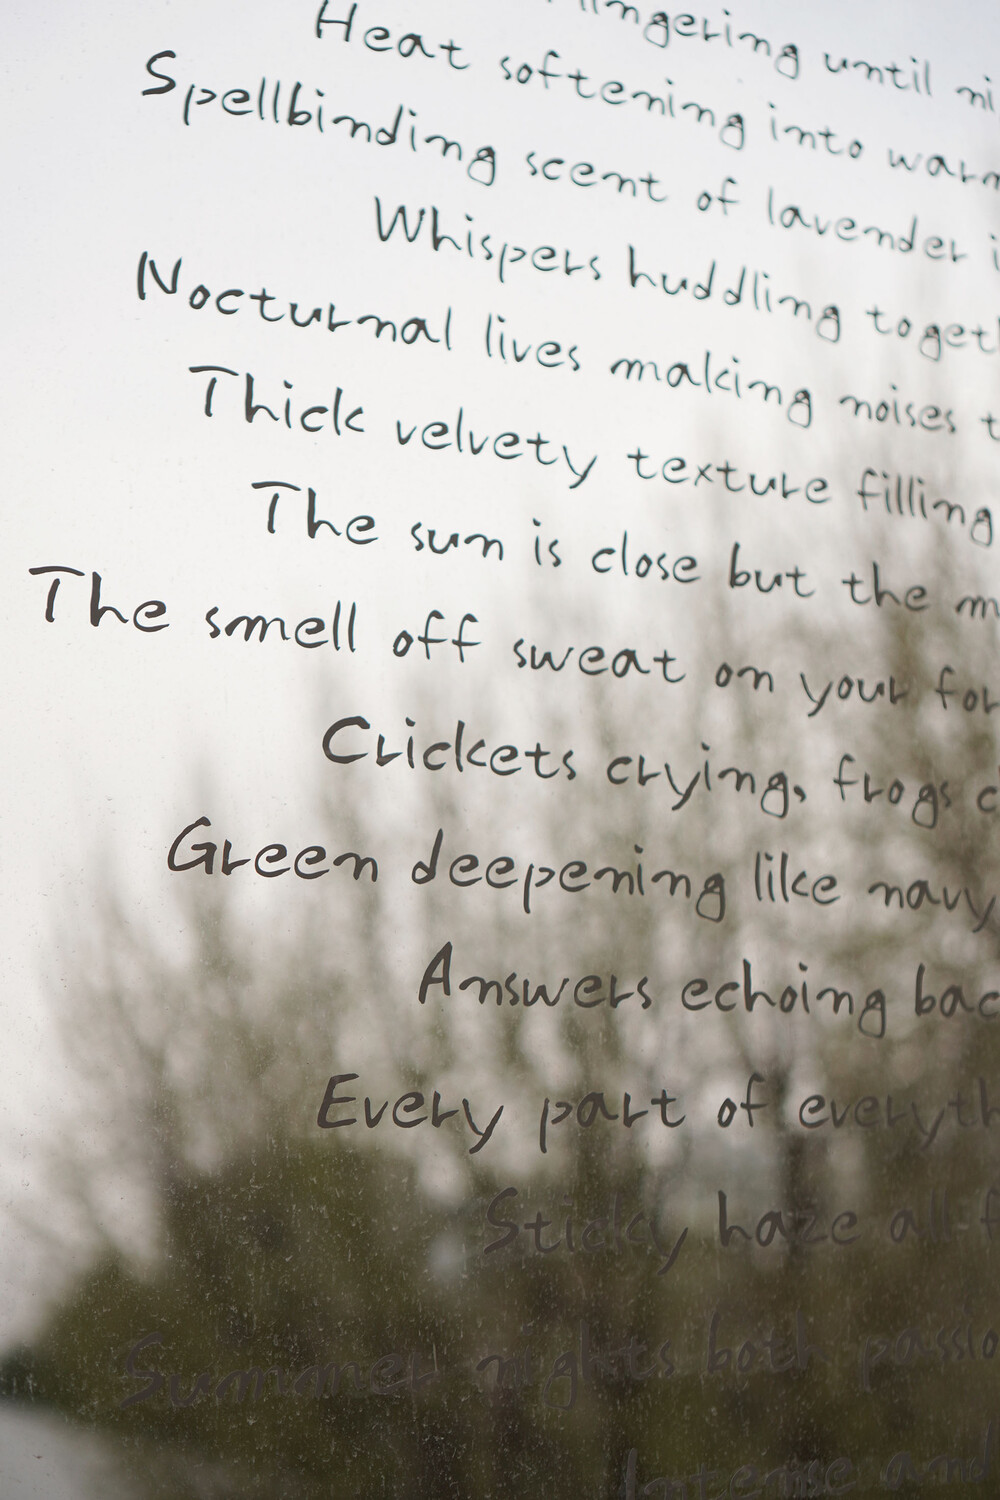 lingering until ni
Heat softening into warm
Spellbinding scent of lavender i
Whispers huddling togeth
Nocturnal lives making noises t
Thick velvety texture filling
The sun is close but the m
The smell off sweat on your for
Crickets crying, frogs c
Green deepening like navy
Answers echoing bac
Every part of everyth
Sticky haze all f
Summer nights both passio
Intense and